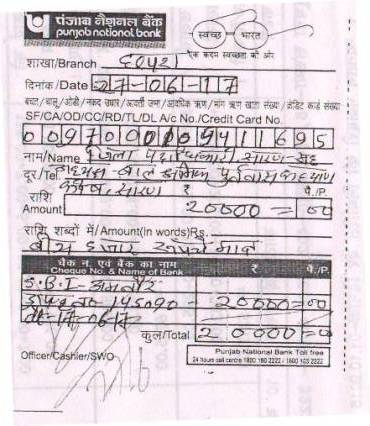 पंजाब नैशनल बैंक
punjab national bank
स्वच्छ भारत
एक कदम स्वच्छता की ओर
शाखा/Branch छपरा
दिनांक/Date 27-06-17
बचत/चालू/ओडी/नकद उधार/आवर्ती जमा/आवधिक ऋण/मांग ऋण खाता संख्या/क्रेडिट कार्ड संख्या
SF/CA/OD/CC/RD/TL/DL A/c No./Credit Card No.
नाम/Name जिला पदाधिकारी सारण-सह
दूर/Tel अध्यक्ष बाल श्रमिक पुर्नवास कल्याण
कोष, सारण
राशि ₹ पै./P.
Amount 20000=00
राशि शब्दों में/Amount(in words)Rs.
बीस हजार रुपये मात्र
चैक न. एवं बैंक का नाम ₹ पै./P.
Cheque No. & Name of Bank
S.B.I-अमनौर
145090- 20000=00
कुल/Total 20000=0
Officer/Cashier/SWO
Punjab National Bank Toll free
24 hours call centre 1800 180 2222 / 1800 103 2222